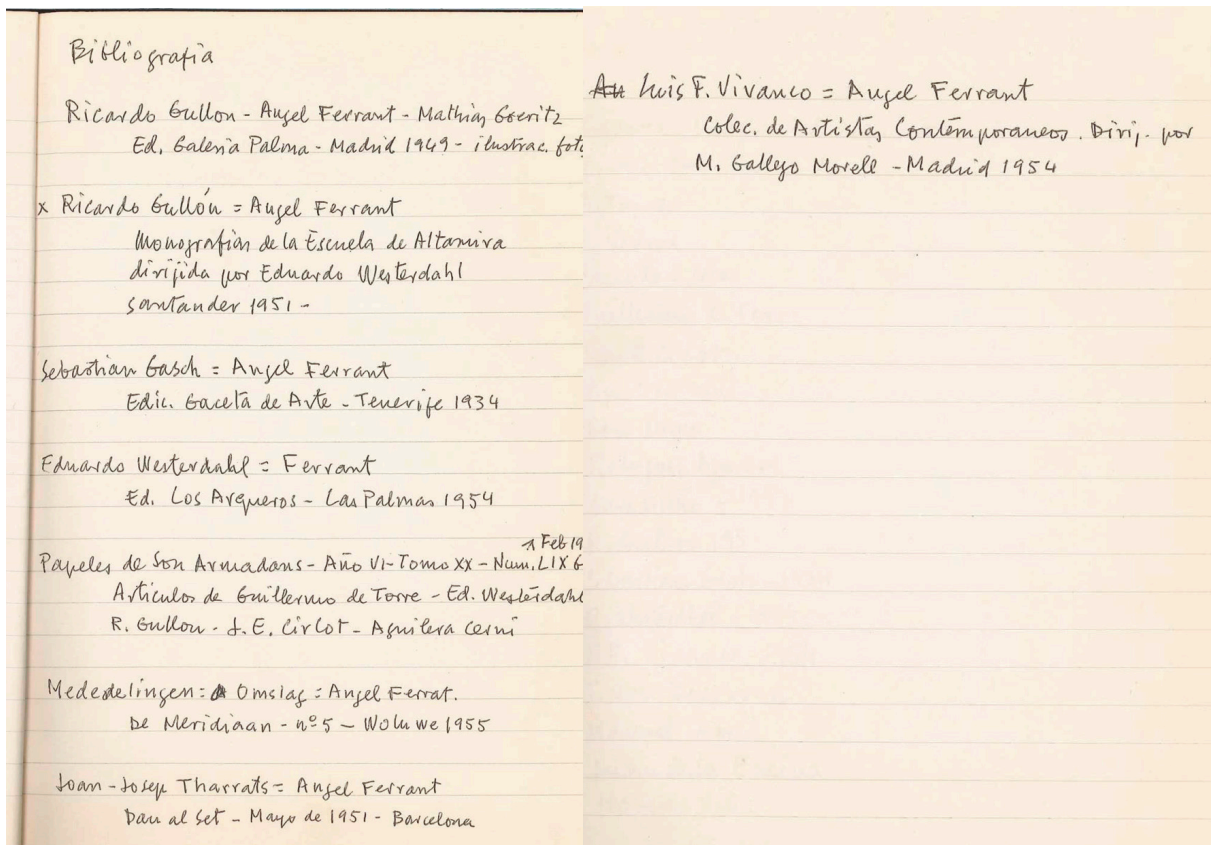 Bibliografia
Ricardo Gullon - Angel Ferrant - Mathias Goeritz
Ed. Galeria Palma - Madrid 1949 - ilustrac. foto
x Ricardo Gullón = Angel Ferrant
Monografias de la Escuela de Altamira
dirijida por Eduardo Westerdahl
santander 1951 -
Sebastian Gasch = Angel Ferrant
Edic. Gaceta de Arte - Tenerife 1934
Eduardo Westerdahl = Ferrant
Ed. Los Arqueros - Las Palmas 1954
Feb 19
Papeles de Son Armadans - Año VI - Tomo XX - Num. LIX
Articulos de Guillermo de Torre - Ed. Westerdahl
R. Gullon - J. E. Cirlot - Aguilera Cerni
Mededelingen: Omslag = Angel Ferrat.
De Meridiaan - nº 5 - Woluwe 1955
Joan-Josep Tharrats = Angel Ferrant
Dau al Set - Mayo de 1951 - Barcelona
Luis F. Vivanco = Angel Ferrant
Colec. de Artistas Contemporaneos. Dirij. por
M. Gallego Morell - Madrid 1954